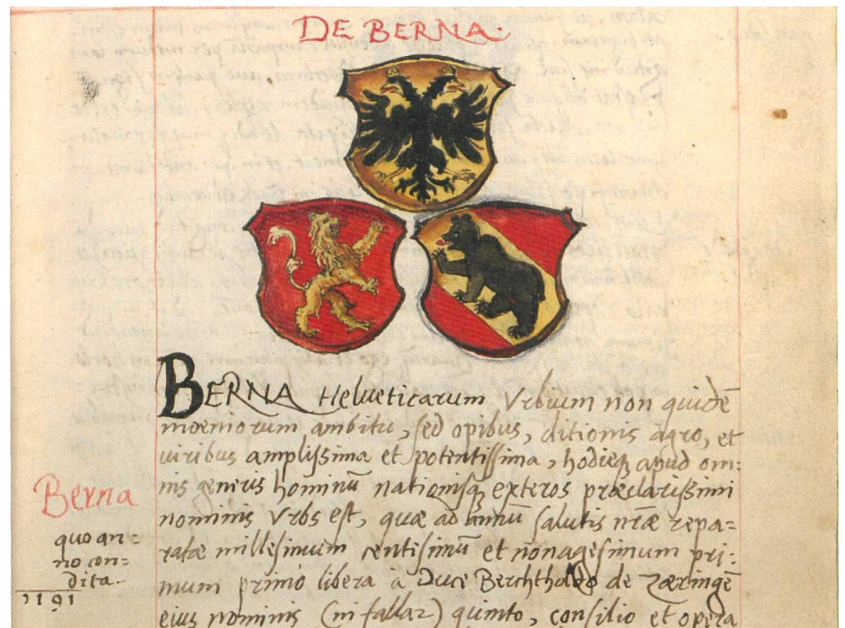 DE BERNA.
BERNA Helveticarum Vrbium non quidē
moeniorum ambitu, sed opibus, ditionis agro, et
viribus amplissima et potentissima, hodieq apud om=
nis generis hominū nationisq exteros præclarissimi
nominis Vrbs est, quæ ad annū salutis nr̄æ repa=
ratæ millesimum centisimū et nonagesimum pri=
mum primo libera à Duce Berchtholdo de Zæringē
eius nominis (ni fallar) quinto, consilio et opera
Berna
quo an=
no con=
dita.
1191